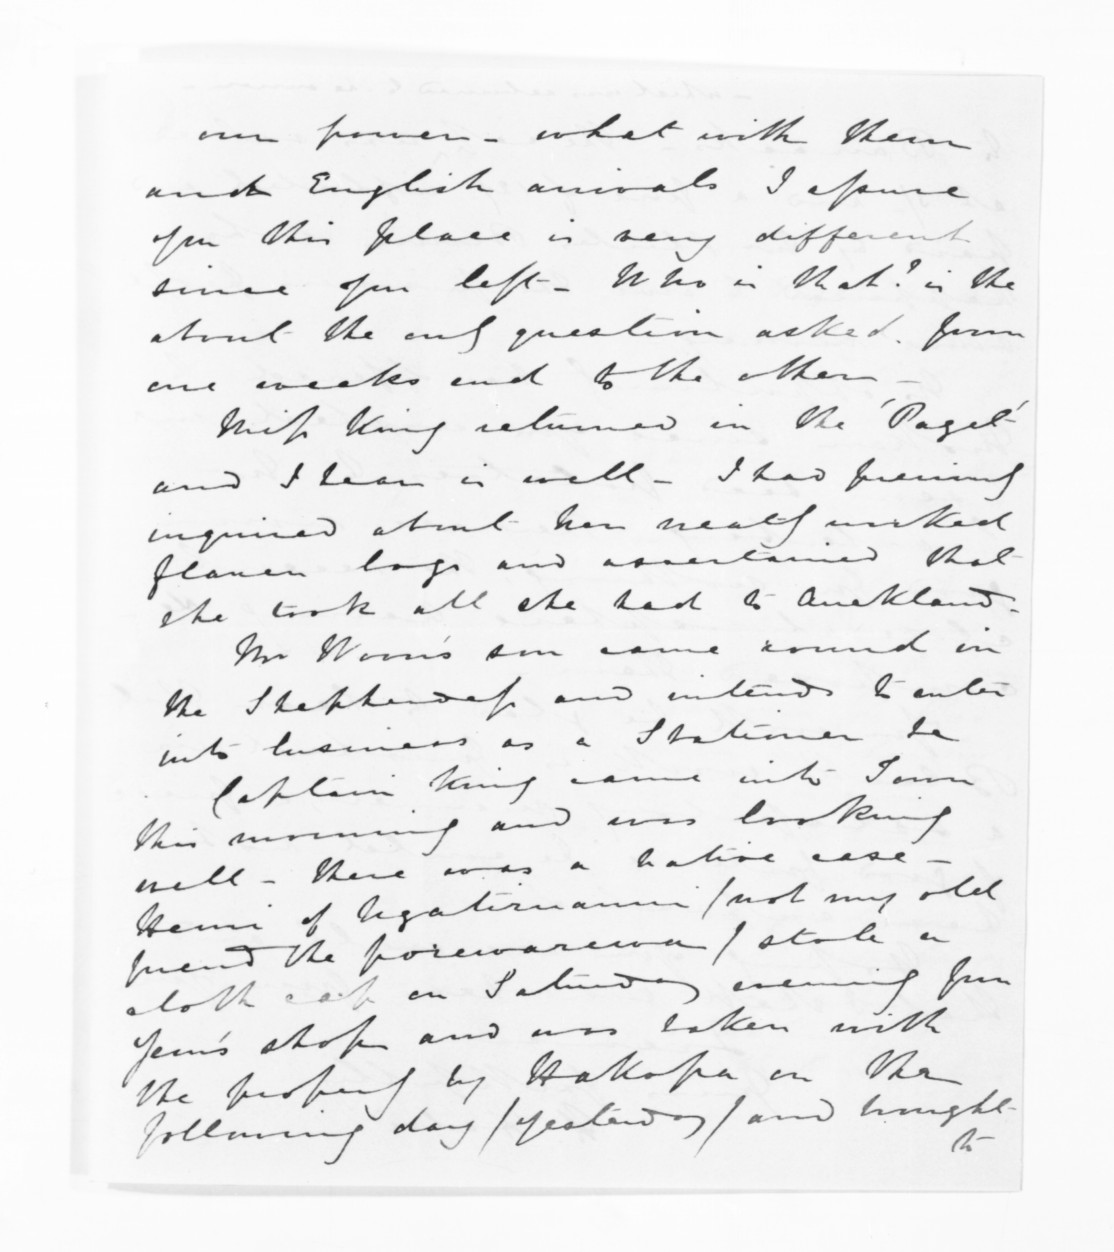 our power - what with them
and English arivals I assure
you this place is very different
since you left - Who is that? is the
about the only question asked from
one weeks end to the other -
Miss King returned in the 'Paget'
and I hear is well - I had previously
inquired about her neatly worked
flaxen bags and ascertained that
she took all she had to Auckland.
Mr Woon's son came round in
the Shepherdess and intends to enter
into business as a Stationer &c
Captain King came into Town
this morning and was looking
well - There was a native case -
Hemi of Ngatiruanui (not my old
friend the porewarewa) stole a
cloth cap on Saturday evening from
shop and was taken with
the property by Hakopa on the
following day (yesterday) and brought
to